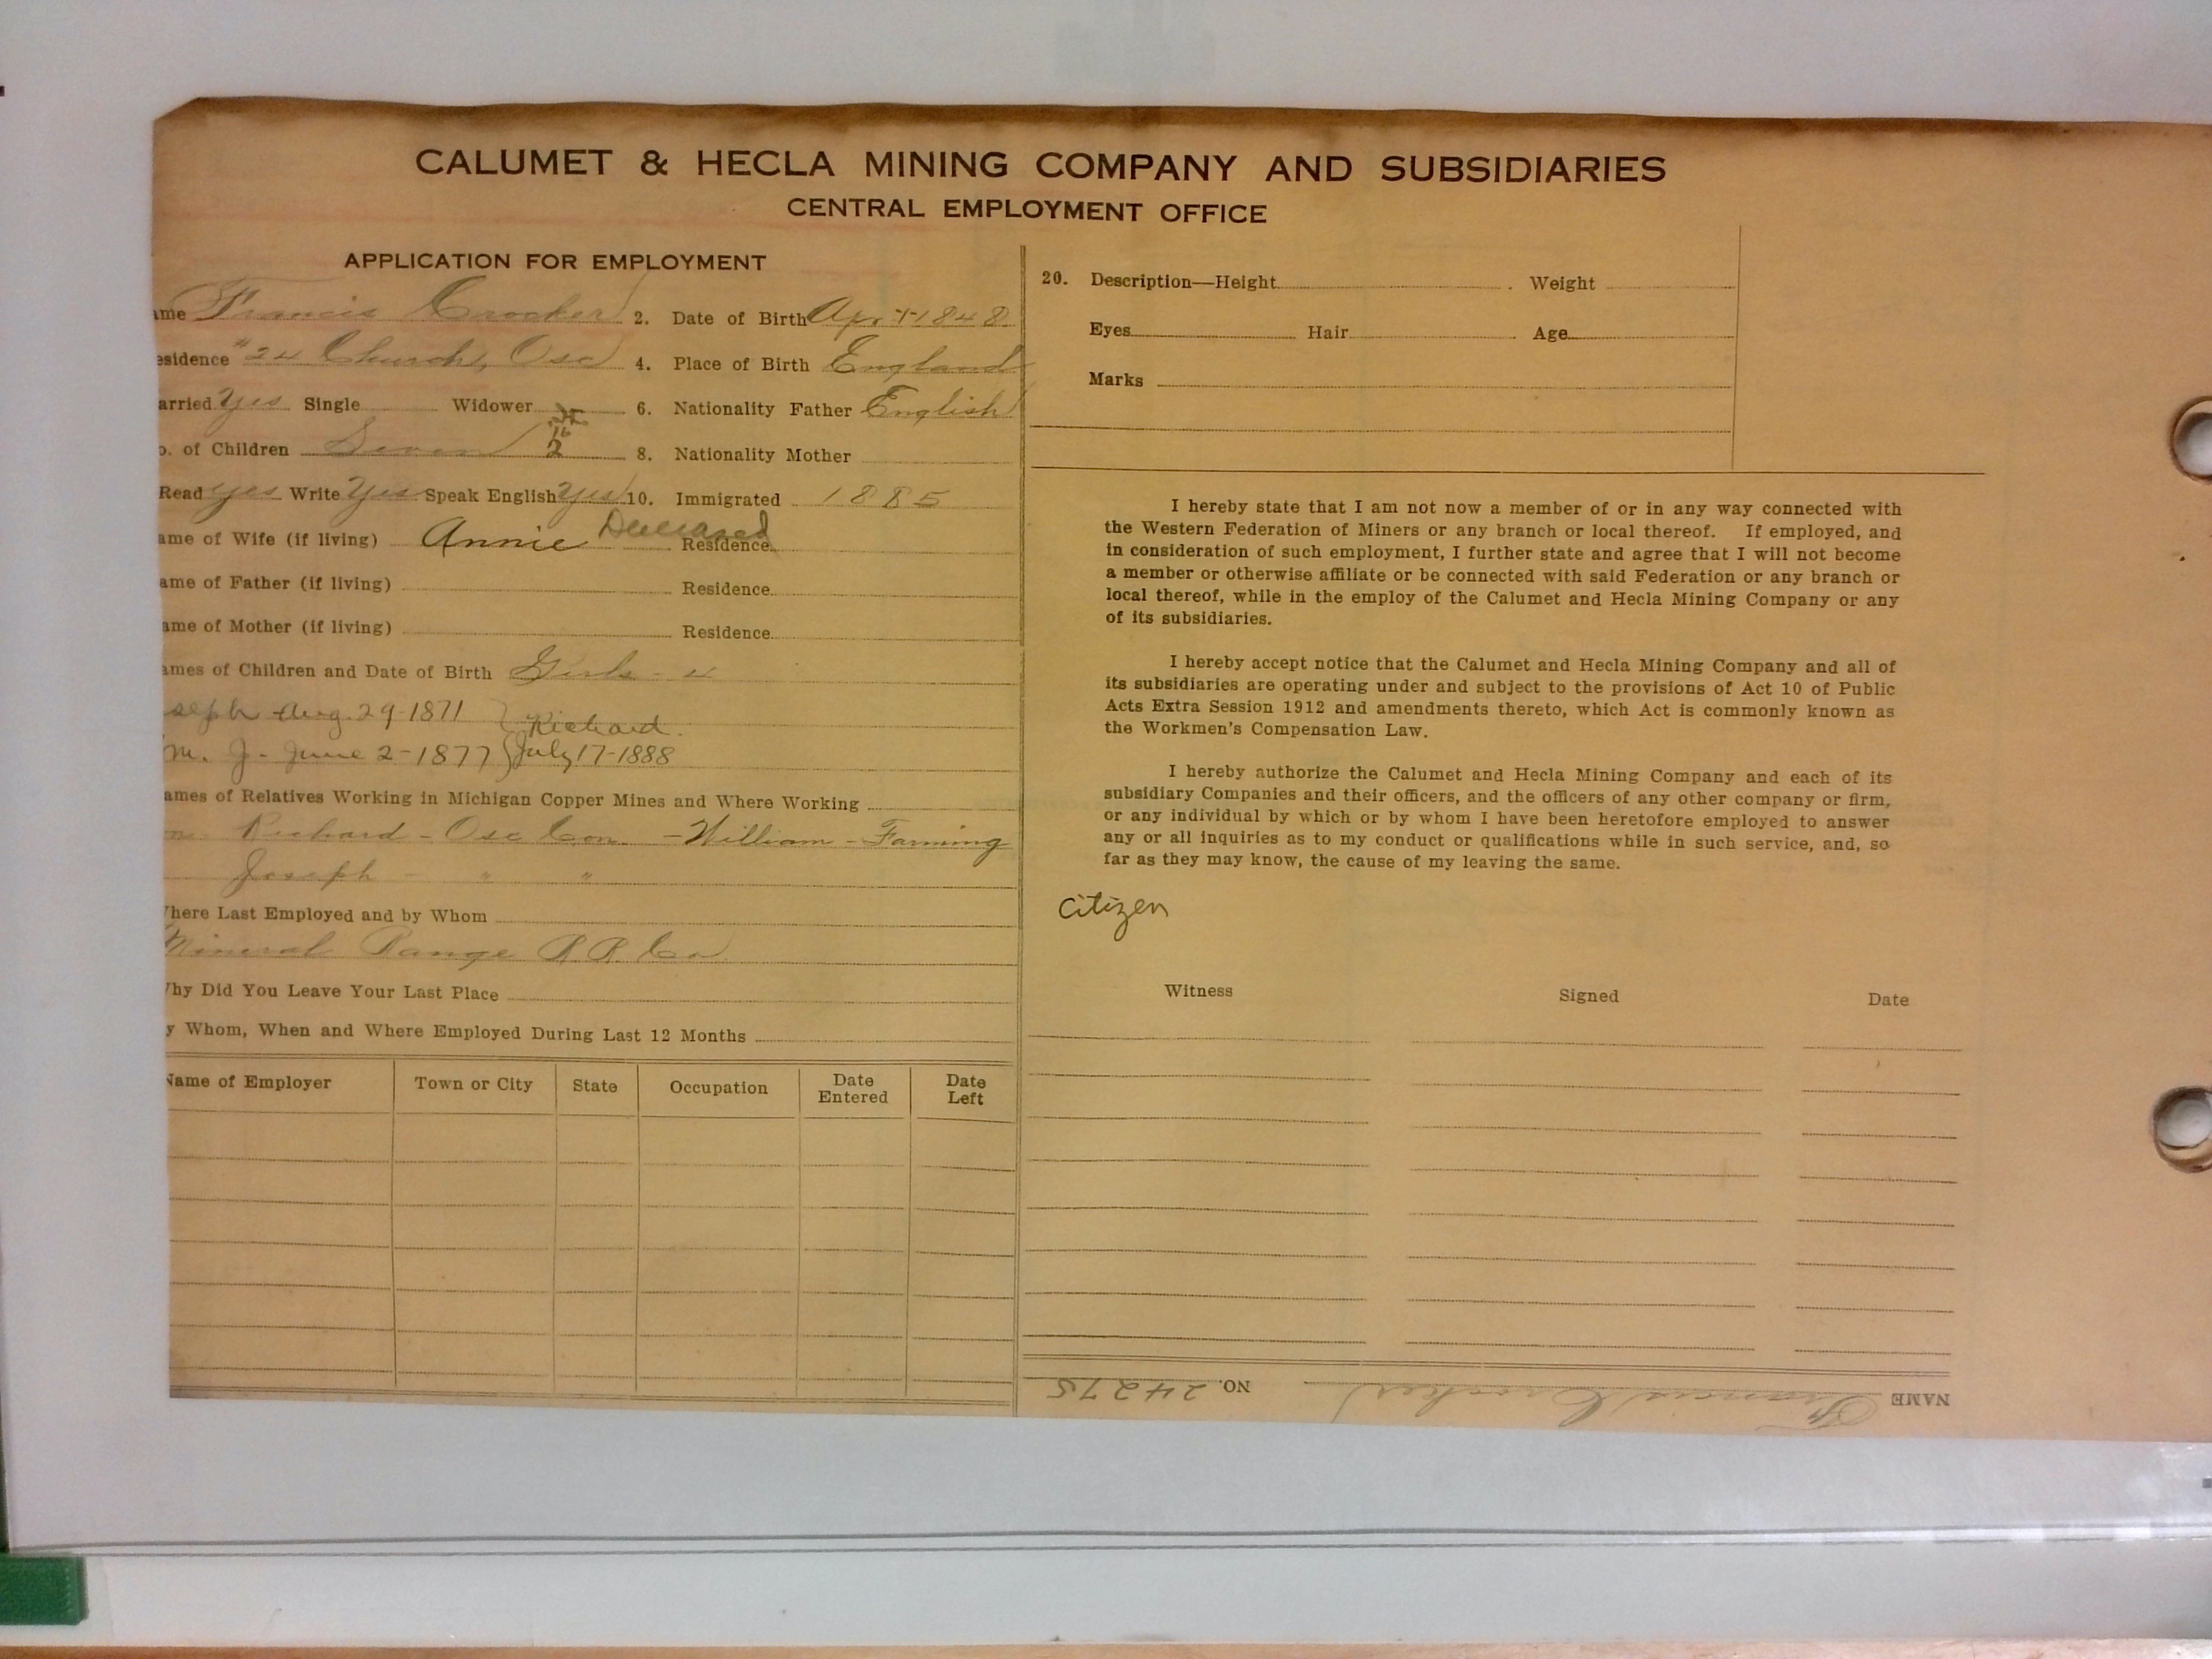 CALUMET & HECLA MINING COMPANY AND SUBSIDIARIES
CENTRAL EMPLOYMENT OFFICE
APPLICATION FOR EMPLOYMENT
ame Francis Crocker 2. Date of Birth Apr 1848
esidence "24 Church, Osc 4. Place of Birth England
arried Yes Single Widower 6. Nationality Father English
o. of Children Seven 8. Nationality Mother
Read yes Write Yes Speak English Yes 10. Immigrated 1885
ame of Wife (if living) Annie Deceased Residence
ame of Father (if living) Residence
ame of Mother (if living) Residence
ames of Children and Date of Birth Girls - 4
seph Aug. 29-1871 } Richard.
m. J- June 2-1877 } July 17-1888
ames of Relatives Working in Michigan Copper Mines and Where Working
n Richard - Osc Con. - William - Farming
Joseph - " "
here Last Employed and by Whom
Mineral Range R.R. Co
hy Did You Leave Your Last Place
y Whom, When and Where Employed During Last 12 Months
Name of Employer Town or City State Occupation Date Entered Date Left
20. Description—Height Weight
Eyes Hair Age
Marks
I hereby state that I am not now a member of or in any way connected with
the Western Federation of Miners or any branch or local thereof. If employed, and
in consideration of such employment, I further state and agree that I will not become
a member or otherwise affiliate or be connected with said Federation or any branch or
local thereof, while in the employ of the Calumet and Hecla Mining Company or any
of its subsidiaries.
I hereby accept notice that the Calumet and Hecla Mining Company and all of
its subsidiaries are operating under and subject to the provisions of Act 10 of Public
Acts Extra Session 1912 and amendments thereto, which Act is commonly known as
the Workmen's Compensation Law.
I hereby authorize the Calumet and Hecla Mining Company and each of its
subsidiary Companies and their officers, and the officers of any other company or firm,
or any individual by which or by whom I have been heretofore employed to answer
any or all inquiries as to my conduct or qualifications while in such service, and, so
far as they may know, the cause of my leaving the same.
Citizen
Witness Signed Date
NAME Francis Crocker NO. 24275